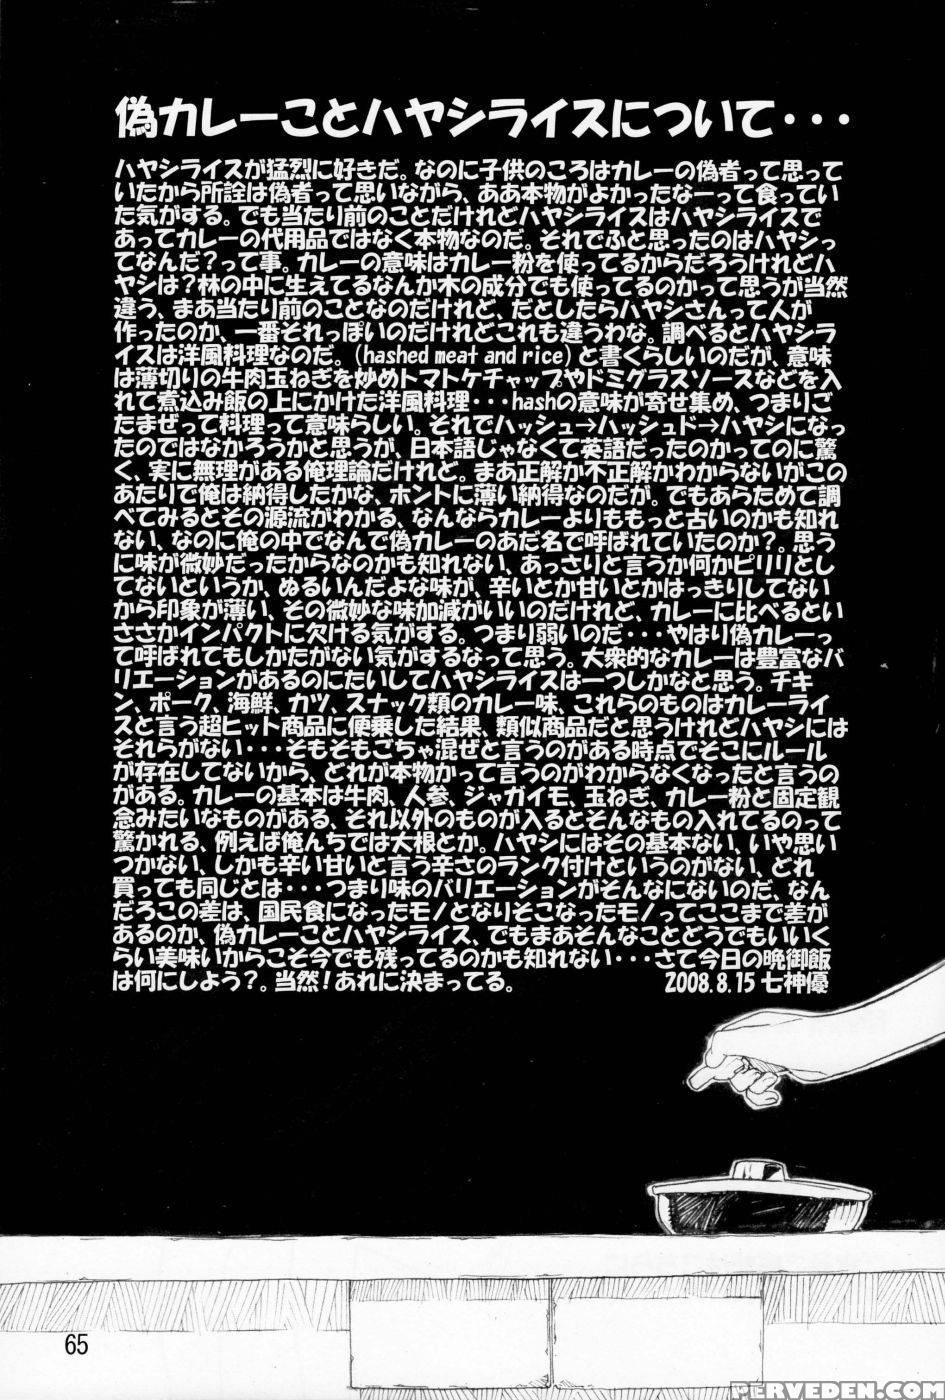 偽カレーことハヤシライスについて・・・
ハヤシライスが猛烈に好きだ。なのに子供のころはカレーの偽者って思って
いたから所詮は偽者って思いながら、ああ本物がよかったなーって食ってい
た気がする。でも当たり前のことだけれどハヤシライスはハヤシライスで
あってカレーの代用品ではなく本物なのだ。それでふと思ったのはハヤシっ
てなんだ？って事。カレーの意味はカレー粉を使ってるからだろうけれどハ
ヤシは？林の中に生えてるなんか木の成分でも使ってるのかって思うが当然
違う、まあ当たり前のことなのだけれど、だとしたらハヤシさんって人が
作ったのか、一番それっぽいのだけれどこれも違うわな。調べるとハヤシラ
イスは洋風料理なのだ。(hashed meat and rice)と書くらしいのだが、意味
は薄切りの牛肉玉ねぎを炒めトマトケチャップやドミグラスソースなどを入
れて煮込み飯の上にかけた洋風料理・・・hashの意味が寄せ集め、つまりご
たまぜって料理って意味らしい。それでハッシュ→ハッシュド→ハヤシになっ
たのではなかろうかと思うが、日本語じゃなくて英語だったのかってのに驚
く、実に無理がある俺理論だけれど。まあ正解か不正解かわからないがこの
あたりで俺は納得したかな、ホントに薄い納得なのだが。でもあらためて調
べてみるとその源流がわかる、なんならカレーよりももっと古いのかも知れ
ない、なのに俺の中でなんで偽カレーのあだ名で呼ばれていたのか？。思う
に味が微妙だったからなのかも知れない、あっさりと言うか何かピリリとし
てないというか、ぬるいんだよな味が、辛いとか甘いとかはっきりしてない
から印象が薄い、その微妙な味加減がいいのだけれど、カレーに比べるとい
ささかインパクトに欠ける気がする。つまり弱いのだ・・・やはり偽カレーっ
て呼ばれてもしかたがない気がするなって思う。大衆的なカレーは豊富なバ
リエーションがあるのにたいしてハヤシライスは一つしかなと思う。チキ
ン、ポーク、海鮮、カツ、スナック類のカレー味、これらのものはカレーライ
スと言う超ヒット商品に便乗した結果、類似商品だと思うけれどハヤシには
それらがない・・・そもそもごちゃ混ぜと言うのがある時点でそこにルール
が存在してないから、どれが本物かって言うのがわからなくなったと言うの
がある。カレーの基本は牛肉、人参、ジャガイモ、玉ねぎ、カレー粉と固定観
念みたいなものがある、それ以外のものが入るとそんなもの入れてるのって
驚かれる、例えば俺んちでは大根とか。ハヤシにはその基本ない、いや思い
つかない、しかも辛い甘いと言う辛さのランク付けというのがない、どれ
買っても同じとは・・・つまり味のバリエーションがそんなにないのだ、なん
だろこの差は、国民食になったモノとなりそこなったモノってここまで差が
あるのか、偽カレーことハヤシライス、でもまあそんなことどうでもいいく
らい美味いからこそ今でも残ってるのかも知れない・・・さて今日の晩御飯
は何にしよう？。当然！あれに決まってる。 2008.8.15 七神優
65
PERVEDEN.COM